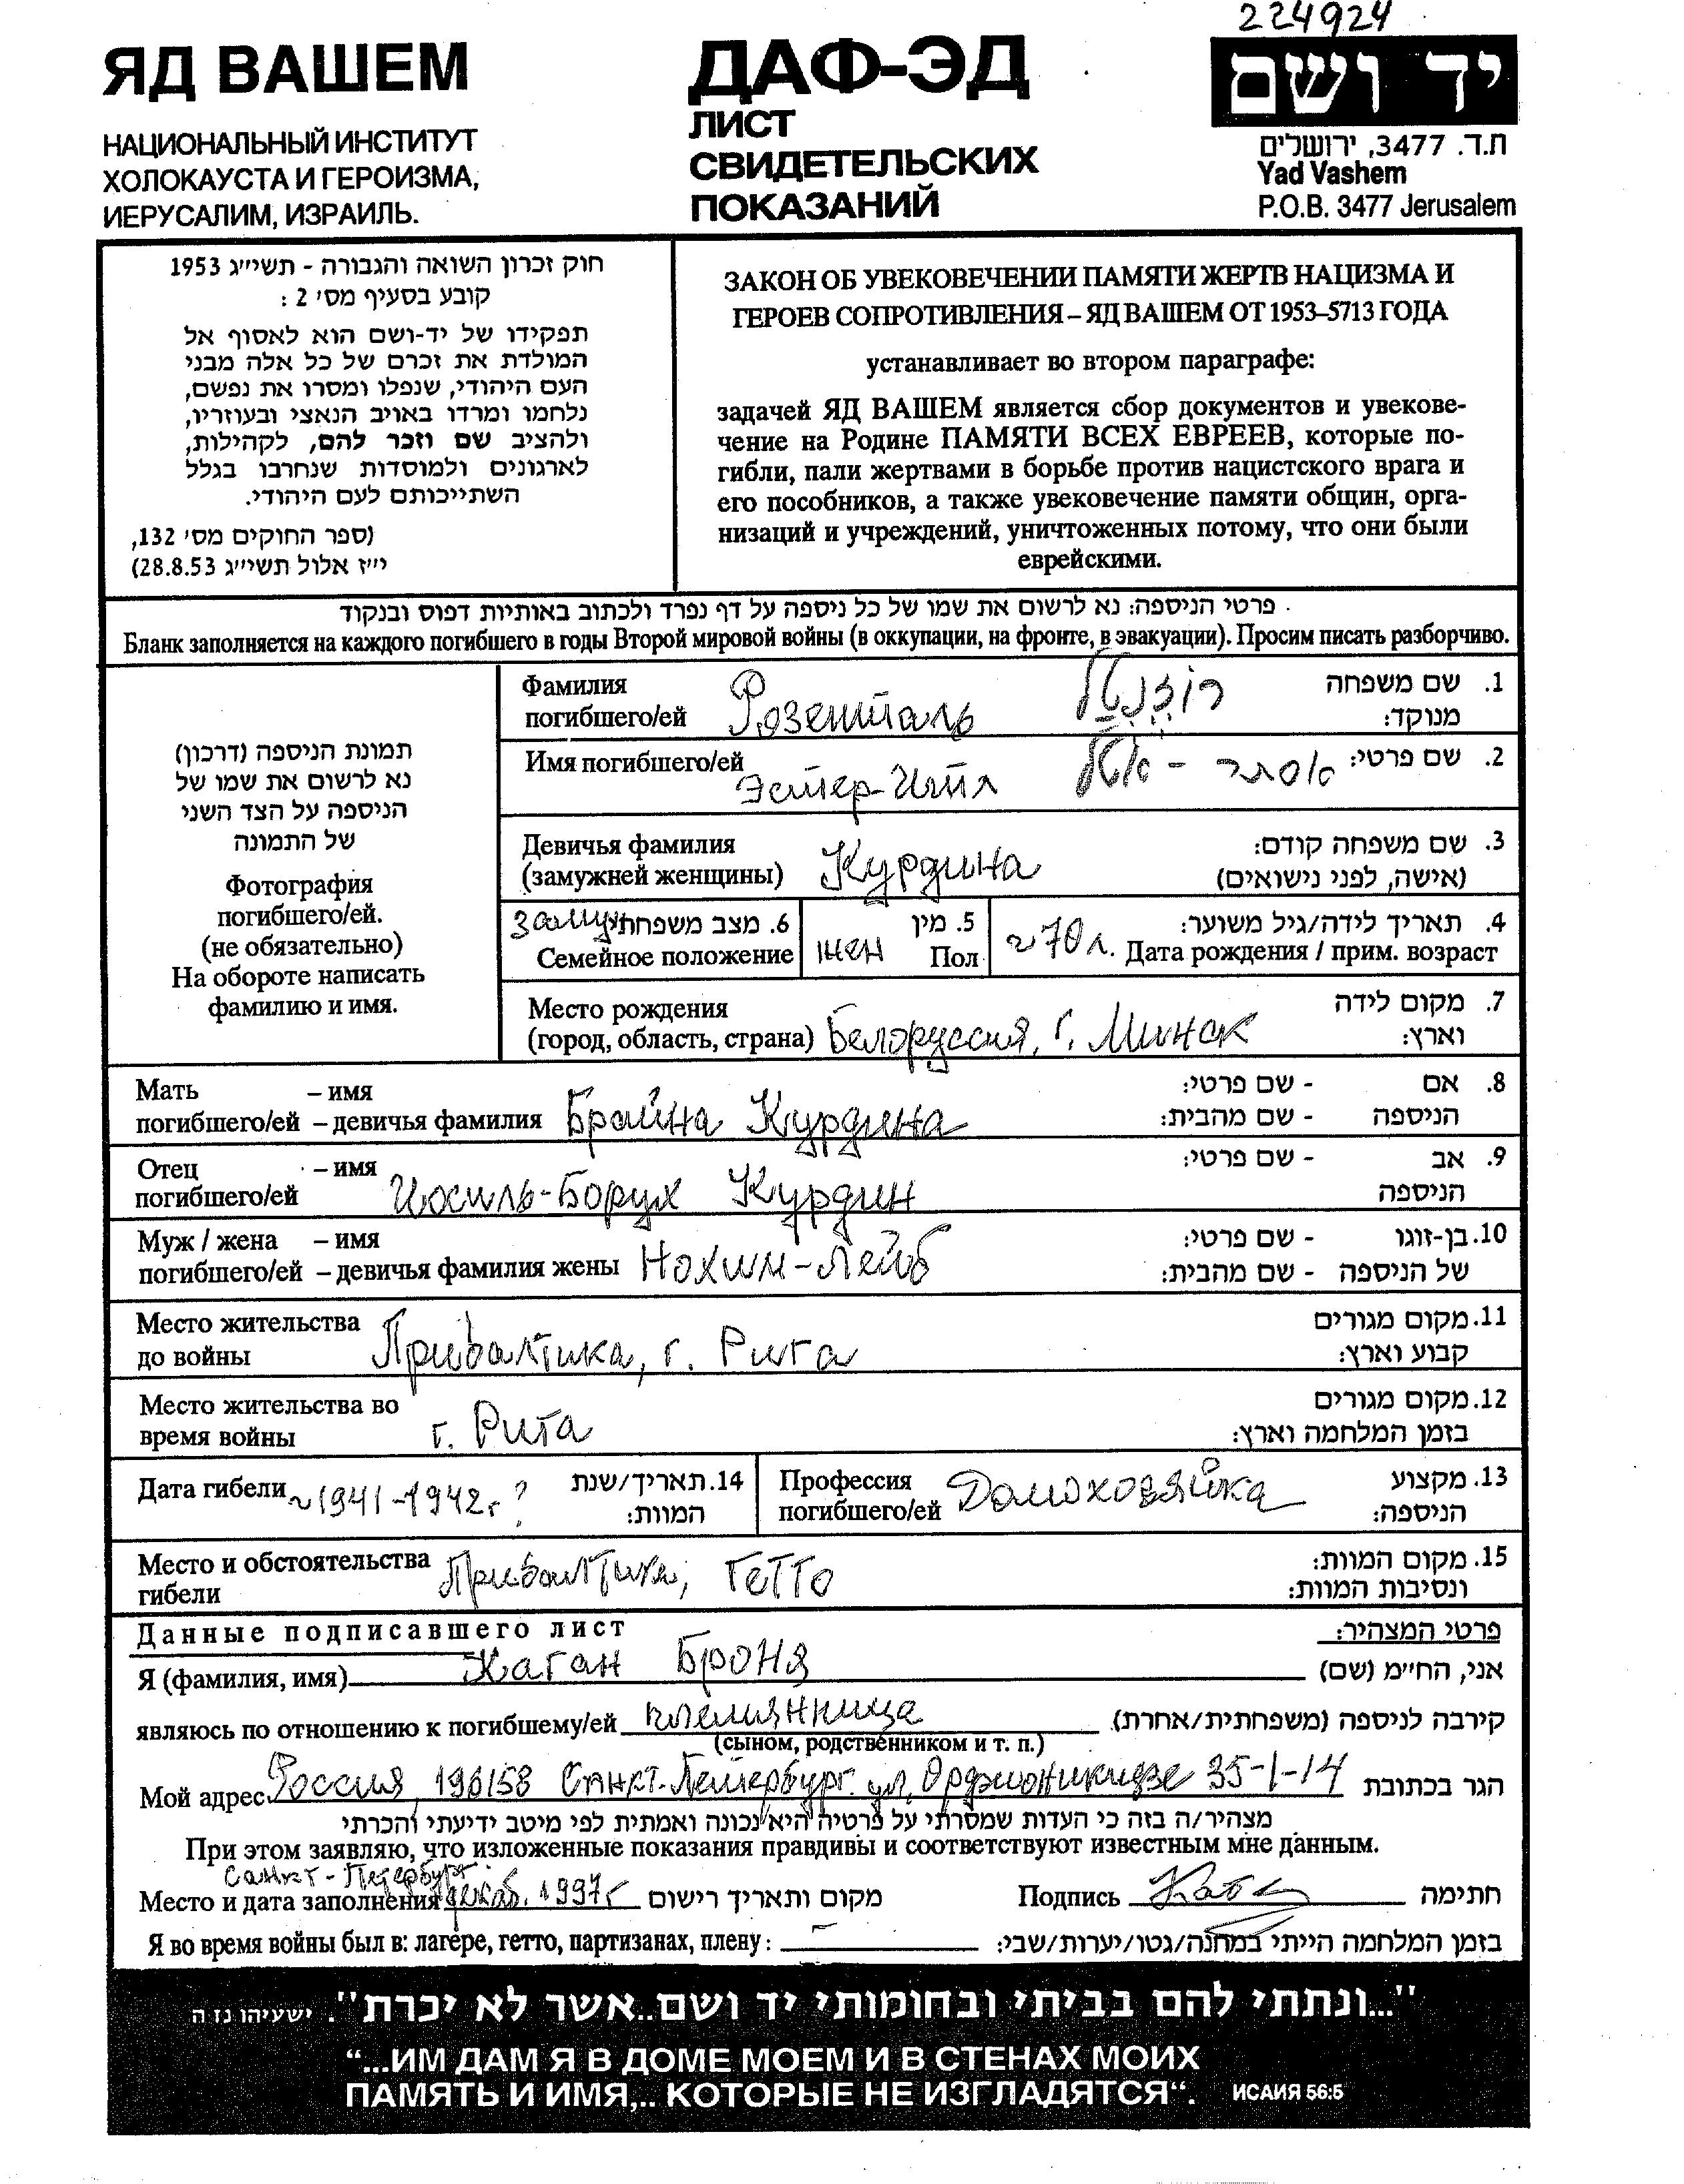 224924
ЯД ВАШЕМ
НАЦИОНАЛЬНЫЙ ИНСТИТУТ
ХОЛОКАУСТА И ГЕРОИЗМА,
ИЕРУСАЛИМ, ИЗРАИЛЬ.
ДАФ-ЭД
ЛИСТ
СВИДЕТЕЛЬСКИХ
ПОКАЗАНИЙ
יד ושם
ת.ד. 3477, ירושלים
Yad Vashem
P.O.B. 3477 Jerusalem
חוק זכרון השואה והגבורה - תשי״ג 1953
קובע בסעיף מס׳ 2 :
תפקידו של יד-ושם הוא לאסוף אל
המולדת את זכרם של כל אלה מבני
העם היהודי, שנפלו ומסרו את נפשם,
נלחמו ומרדו באויב הנאצי ובעוזריו,
ולהציב שם וזכר להם, לקהילות,
לארגונים ולמוסדות שנחרבו בגלל
השתייכותם לעם היהודי.
(ספר החוקים מס׳ 132,
י״ז אלול תשי״ג 28.8.53)
ЗАКОН ОБ УВЕКОВЕЧЕНИИ ПАМЯТИ ЖЕРТВ НАЦИЗМА И
ГЕРОЕВ СОПРОТИВЛЕНИЯ – ЯД ВАШЕМ ОТ 1953–5713 ГОДА
устанавливает во втором параграфе:
задачей ЯД ВАШЕМ является сбор документов и увекове-
чение на Родине ПАМЯТИ ВСЕХ ЕВРЕЕВ, которые по-
гибли, пали жертвами в борьбе против нацистского врага и
его пособников, а также увековечение памяти общин, орга-
низаций и учреждений, уничтоженных потому, что они были
еврейскими.
פרטי הניספה: נא לרשום את שמו של כל ניספה על דף נפרד ולכתוב באותיות דפוס ובנקוד
Бланк заполняется на каждого погибшего в годы Второй мировой войны (в оккупации, на фронте, в эвакуации). Просим писать разборчиво.
תמונת הניספה (דרכון)
נא לרשום את שמו של
הניספה על הצד השני
של התמונה
Фотография
погибшего/ей.
(не обязательно)
На обороте написать
фамилию и имя.
Фамилия
погибшего/ей Розенталь
1. שם משפחה
מנוקד:
Имя погибшего/ей Эстер-Итл
2. שם פרטי: אסתר -
Девичья фамилия
(замужней женщины) Курдина
3. שם משפחה קודם:
(אישה, לפני נישואים)
замуж 6. מצב משפחתי
Семейное положение
5. מין
жен Пол
4. תאריך לידה/גיל משוער:
~70 л. Дата рождения / прим. возраст
Место рождения
(город, область, страна) Белоруссия, г. Минск
7. מקום לידה
וארץ:
Мать – имя
погибшего/ей – девичья фамилия Брайна Курдина
8. אם - שם פרטי:
הניספה - שם מהבית:
Отец – имя
погибшего/ей Иосиль-Борух Курдин
9. אב - שם פרטי:
הניספה
Муж / жена – имя
погибшего/ей – девичья фамилия жены Нохим-Лейб
10. בן-זוגו - שם פרטי:
של הניספה - שם מהבית:
Место жительства
до войны Прибалтика, г. Рига
11. מקום מגורים
קבוע וארץ:
Место жительства во
время войны г. Рига
12. מקום מגורים
בזמן המלחמה וארץ:
Дата гибели ~1941-1942г ?
14. תאריך/שנת
המוות:
Профессия
погибшего/ей Домохозяйка
13. מקצוע
הניספה:
Место и обстоятельства
гибели Прибалтика, гетто
15. מקום המוות:
ונסיבות המוות:
Данные подписавшего лист
פרטי המצהיר:
Я (фамилия, имя) Каган Броня אני, הח״מ (שם)
являюсь по отношению к погибшему/ей племянница קירבה לניספה (משפחתית/אחרת)
(сыном, родственником и т. п.)
Мой адрес Россия, 196158 Санкт-Петербург ул. Орджоникидзе 35-1-14 הגר בכתובת
מצהיר/ה בזה כי העדות שמסרתי על פרטיה היא נכונה ואמתית לפי מיטב ידיעתי והכרתי
При этом заявляю, что изложенные показания правдивы и соответствуют известным мне данным.
Санкт-Петербург
Место и дата заполнения декаб. 1997г מקום ותאריך רישום
Подпись חתימה
Я во время войны был в: лагере, гетто, партизанах, плену: – בזמן המלחמה הייתי במחנה/גטו/יערות/שבי:
"...ונתתי להם בביתי ובחומותי יד ושם..אשר לא יכרת". ישעיהו נז ה
“...ИМ ДАМ Я В ДОМЕ МОЕМ И В СТЕНАХ МОИХ
ПАМЯТЬ И ИМЯ,.. КОТОРЫЕ НЕ ИЗГЛАДЯТСЯ“. ИСАИЯ 56:5